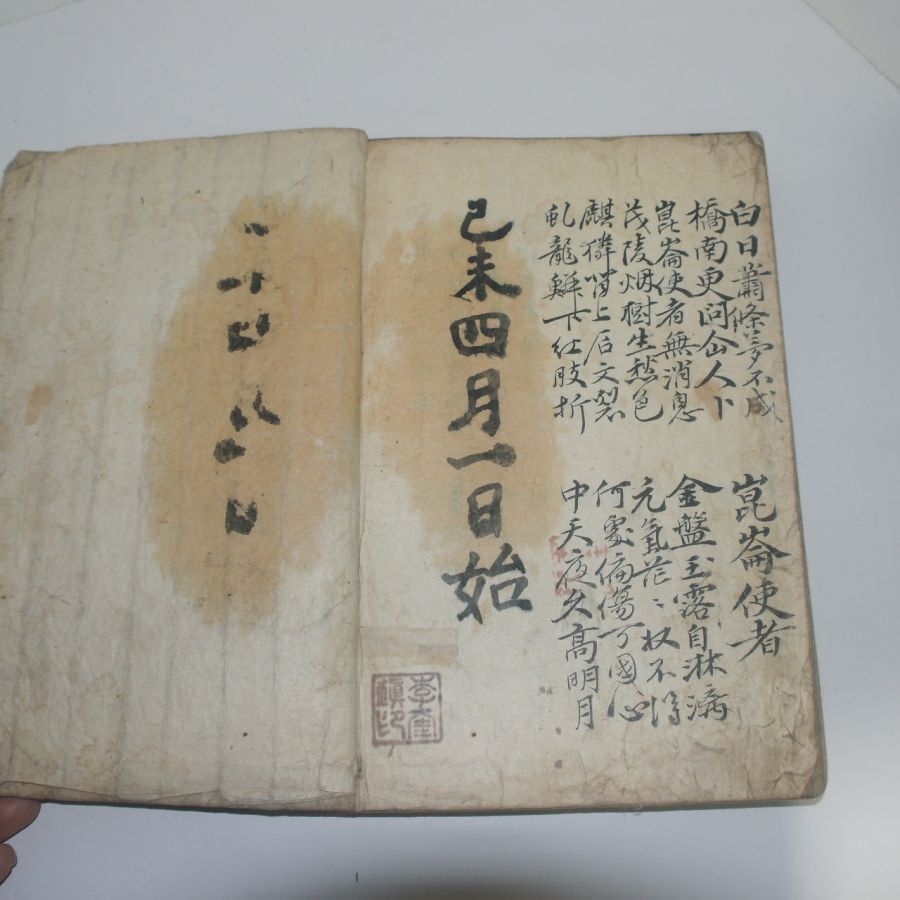 白日蕭條夢不成
橋南更問仚人卜
崑崙使者無消息
茂陵烟樹生愁色
麒獜背上石文裂
虬龍鮮下紅肢折
崑崙使者
金盤玉露自淋漓
元氣茫〻收不得
何處偏傷万國心
中天夜久高明月
己未四月一日始
李奎鎮印